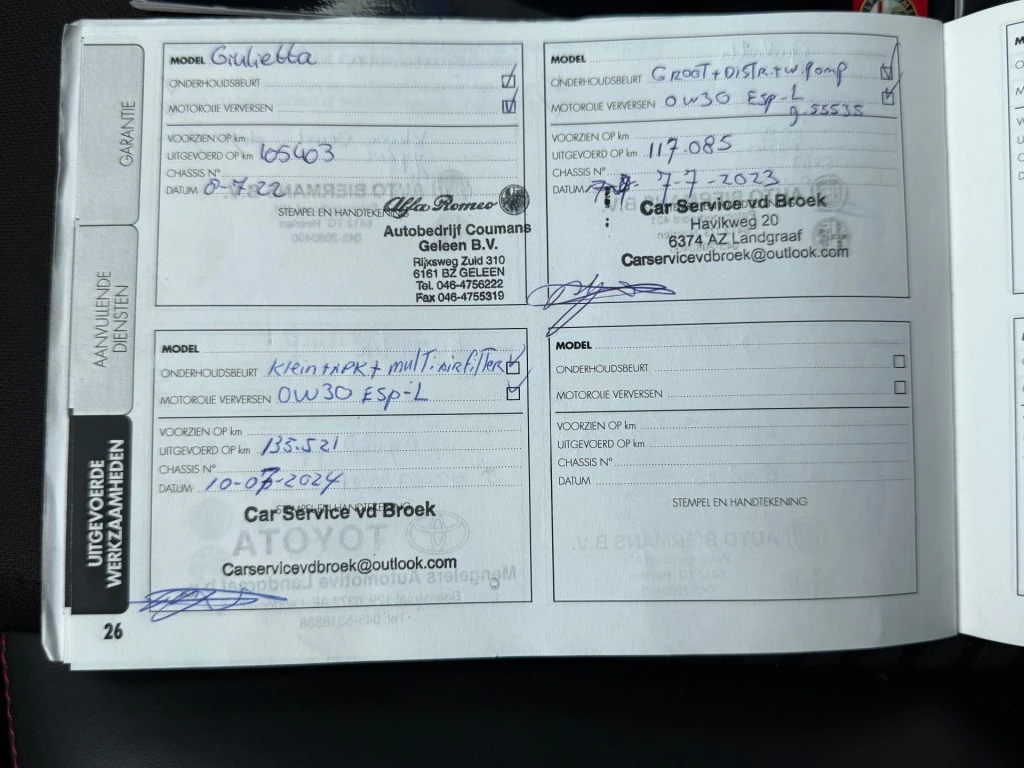 GARANTIE
AANVULLENDE
DIENSTEN
UITGEVOERDE
WERKZAAMHEDEN
26
MODEL Giulietta
ONDERHOUDSBEURT
MOTOROLIE VERVERSEN
VOORZIEN OP km
UITGEVOERD OP km 105403
CHASSIS N°
DATUM 8-7-22
STEMPEL EN HANDTEKENING
Alfa Romeo
Autobedrijf Coumans
Geleen B.V.
Rijksweg Zuid 310
6161 BZ GELEEN
Tel. 046-4756222
Fax 046-4755319
MODEL
ONDERHOUDSBEURT GROOT + DISTR. + W. Pomp
MOTOROLIE VERVERSEN 0W30 ESP-L
g. 55535
VOORZIEN OP km
UITGEVOERD OP km 117.085
CHASSIS N°
DATUM 7-7-2023
Car Service vd Broek
Havikweg 20
6374 AZ Landgraaf
Carservicevdbroek@outlook.com
MODEL
ONDERHOUDSBEURT Klein + APK + multiairfilter
MOTOROLIE VERVERSEN 0W30 ESP-L
VOORZIEN OP km
UITGEVOERD OP km 135.521
CHASSIS N°
DATUM 10-07-2024
STEMPEL EN HANDTEKENING
Car Service vd Broek
Carservicevdbroek@outlook.com
MODEL
ONDERHOUDSBEURT
MOTOROLIE VERVERSEN
VOORZIEN OP km
UITGEVOERD OP km
CHASSIS N°
DATUM
STEMPEL EN HANDTEKENING